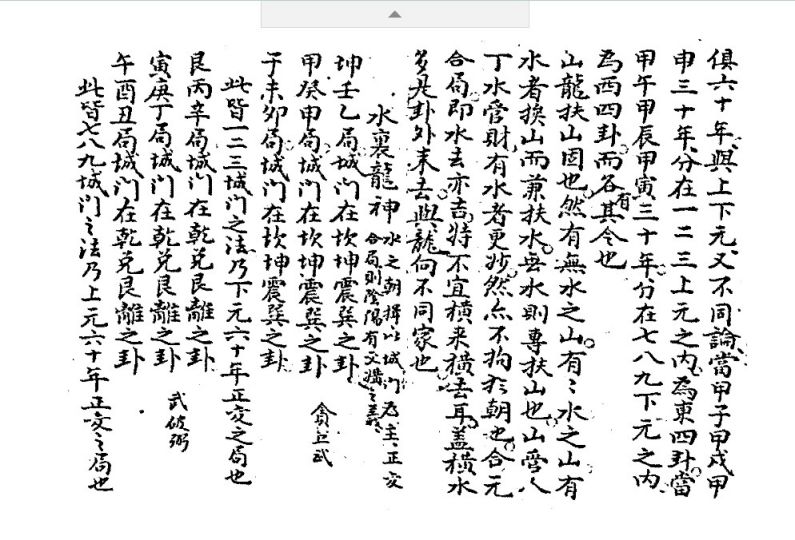 俱六十年與上下元又不同論當甲子甲戌甲
申三十年分在一二三上元之內為東四卦當
甲午甲辰甲寅三十年分在七八九下元之內
為西四卦而各有其令也
山龍扶山固也然有無水之山有〻水之山有
水者挨山而兼扶水無水則專扶山也山管人
丁水管財有水者更妙然亦不拘於朝也合元
合局即水去亦吉特不宜橫來橫去耳蓋橫水
多是卦外來去與龍向不同家也
水裏龍神 水之朝揖以城門為主正交
合局則陰陽有交媾之義
坤壬乙局城門在坎坤震巽之卦
甲癸申局城門在坎坤震巽之卦 貪巨武
子未卯局城門在坎坤震巽之卦
此皆一二三城門之法乃下元六十年正交之局也
艮丙辛局城門在乾兌艮離之卦
寅庚丁局城門在乾兌艮離之卦 武破弼
午酉丑局城門在乾兌艮離之卦
此皆七八九城門之法乃上元六十年正交之局也